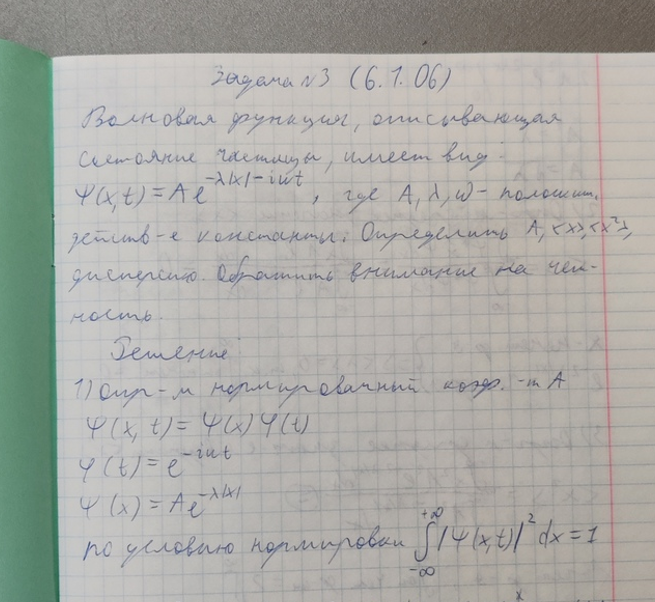 Задача №3 (6.1.06)
Волновая функция, описывающая
состояние частицы, имеет вид:
Ψ(x,t) = A e^{-λ|x|-iωt}, где A, λ, ω - полошит.
действ-е константы. Определить A, <x>, <x²>,
дисперсию. Обратить внимание на чет-
ность.
Решение
1) Опр-м нормировачный коэф.-т A
Ψ(x,t) = Ψ(x) φ(t)
φ(t) = e^{-iωt}
Ψ(x) = A e^{-λ|x|}
по условию нормировки ∫_{-∞}^{+∞} |Ψ(x,t)|² dx = 1